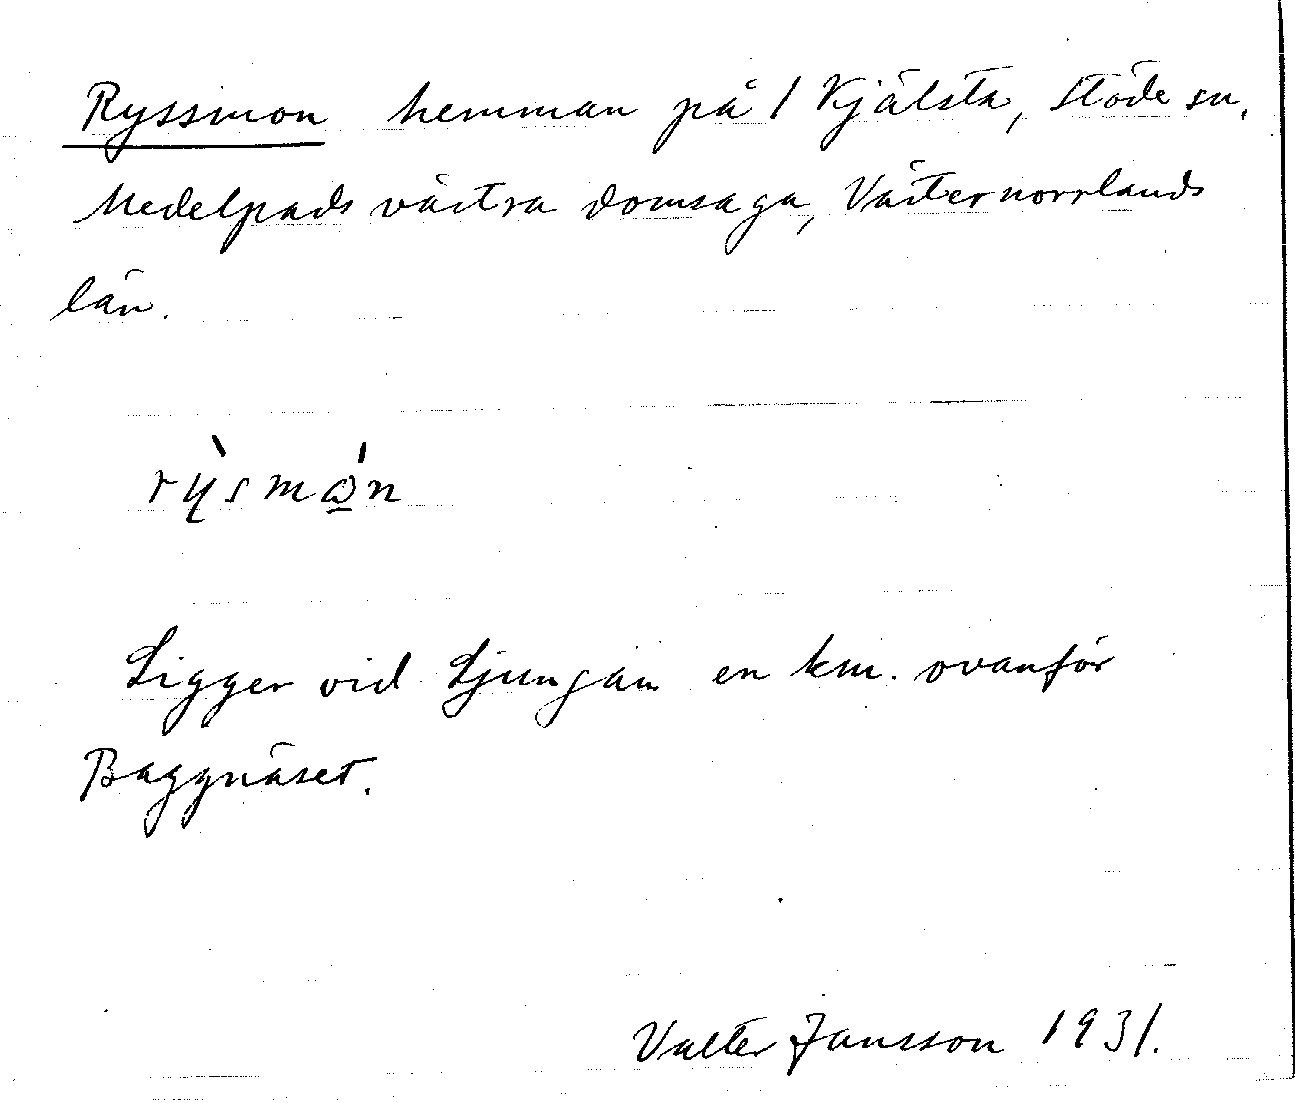 Ryssmon hemman på 1 Kjälsta, Stöde sn.
Medelpads västra domsaga, Västernorrlands
län.
rỳsmǫ́n
Ligger vid Ljungan en km. ovanför
Baggnäset.
Valter Jansson 1931.